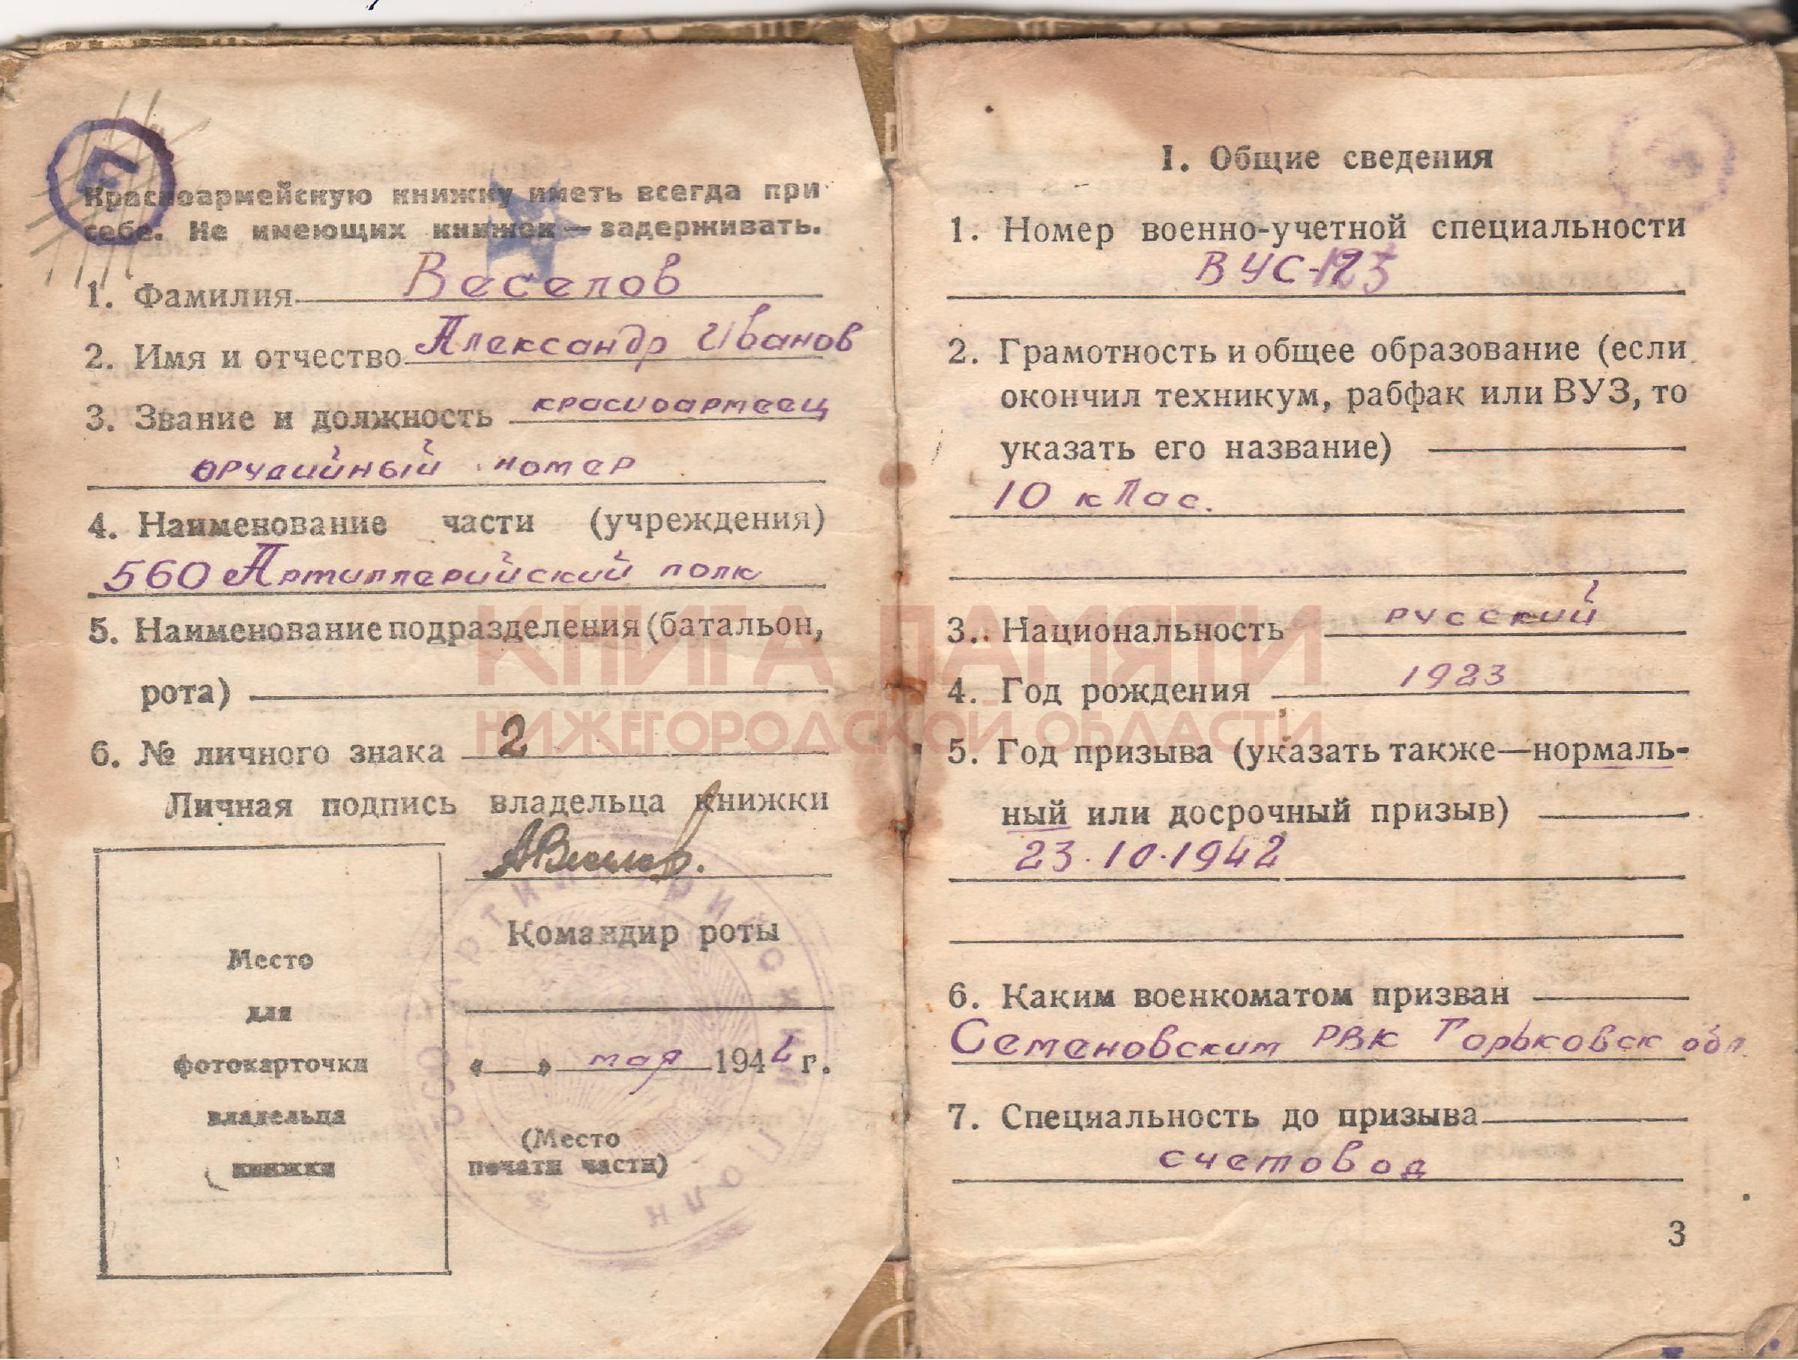 Красноармейскую книжку иметь всегда при
себе. Не имеющих книжек — задерживать.
1. Фамилия Веселов
2. Имя и отчество Александр Иванов
3. Звание и должность красноармеец
орудийный номер
4. Наименование части (учреждения)
560 Артиллерийский полк
5. Наименование подразделения (батальон,
рота)
6. № личного знака 2
Личная подпись владельца книжки
Место
для
фотокарточки
владельца
книжки
Командир роты
« » мая 194 г.
(Место
печати части)
560 Артиллерийский Полк
I. Общие сведения
1. Номер военно-учетной специальности
ВУС-123
2. Грамотность и общее образование (если
окончил техникум, рабфак или ВУЗ, то
указать его название)
10 клас.
3. Национальность русский
4. Год рождения 1923
5. Год призыва (указать также—нормаль-
ный или досрочный призыв)
23.10.1942
6. Каким военкоматом призван
Семеновским РВК Горьковск обл.
7. Специальность до призыва
счетовод
3
КНИГА ПАМЯТИ
НИЖЕГОРОДСКОЙ ОБЛАСТИ